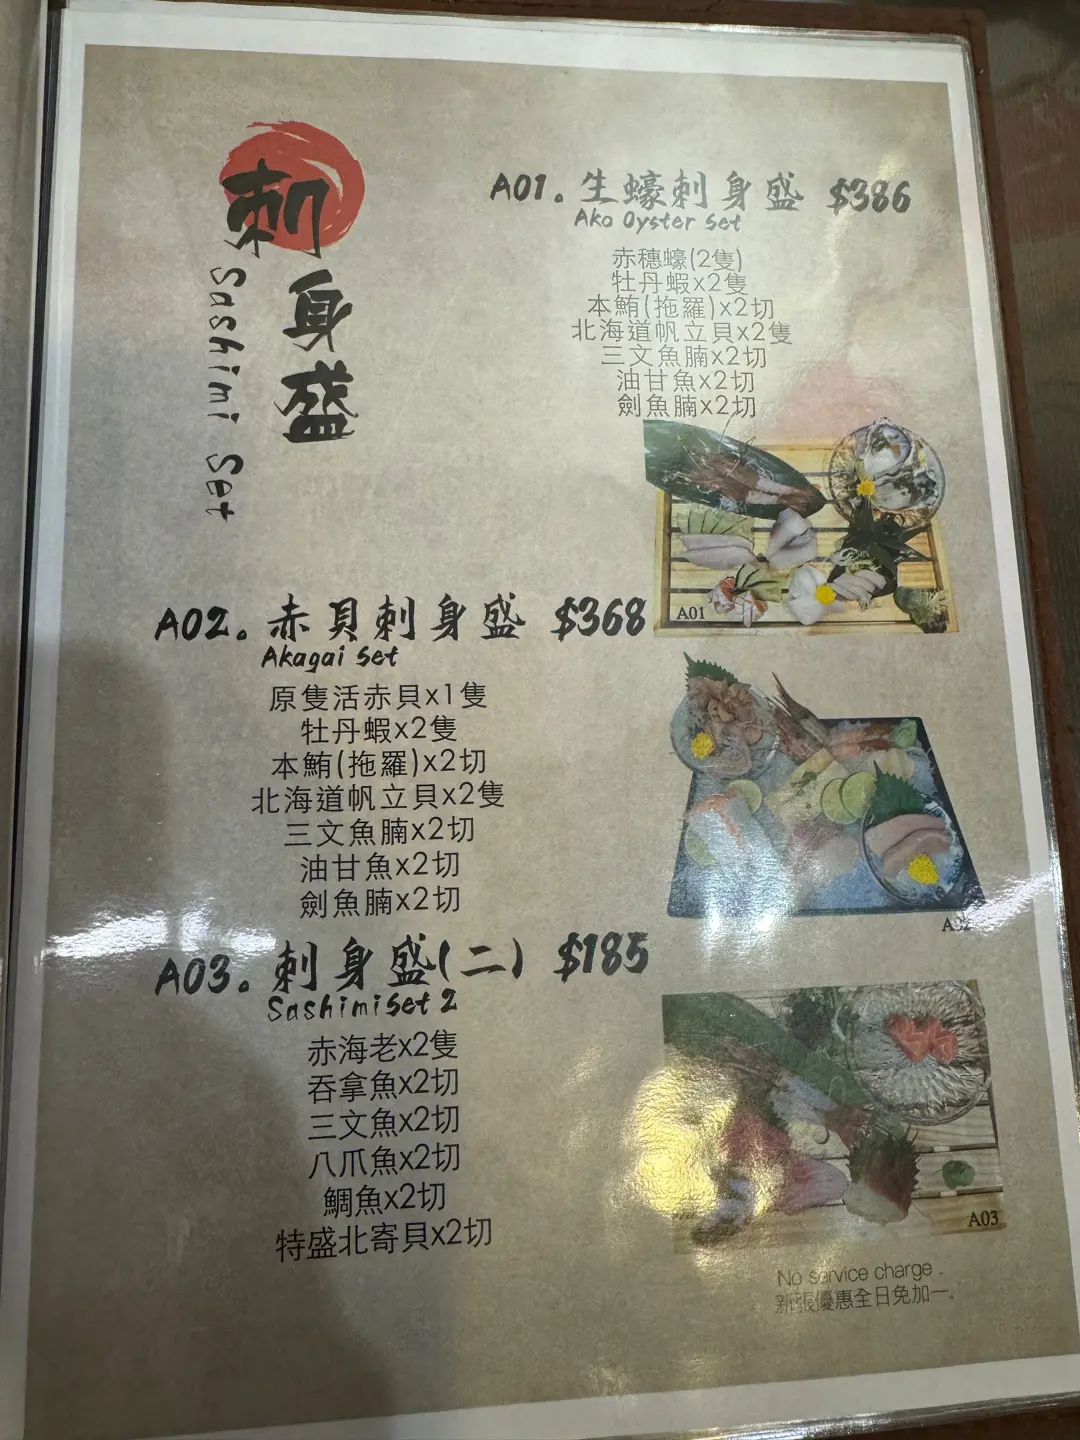 刺身盛
Sashimi Set
A01。生蠔刺身盛 $386
Ako Oyster Set
赤穗蠔(2隻)
牡丹蝦x2隻
本鮪(拖羅)x2切
北海道帆立貝x2隻
三文魚腩x2切
油甘魚x2切
劍魚腩x2切
A01
A02。赤貝刺身盛 $368
Akagai Set
原隻活赤貝x1隻
牡丹蝦x2隻
本鮪(拖羅)x2切
北海道帆立貝x2隻
三文魚腩x2切
油甘魚x2切
劍魚腩x2切
A02
A03。刺身盛(二) $185
Sashimi Set 2
赤海老x2隻
吞拿魚x2切
三文魚x2切
八爪魚x2切
鯛魚x2切
特盛北寄貝x2切
A03
No service charge .
新張優惠全日免加一.